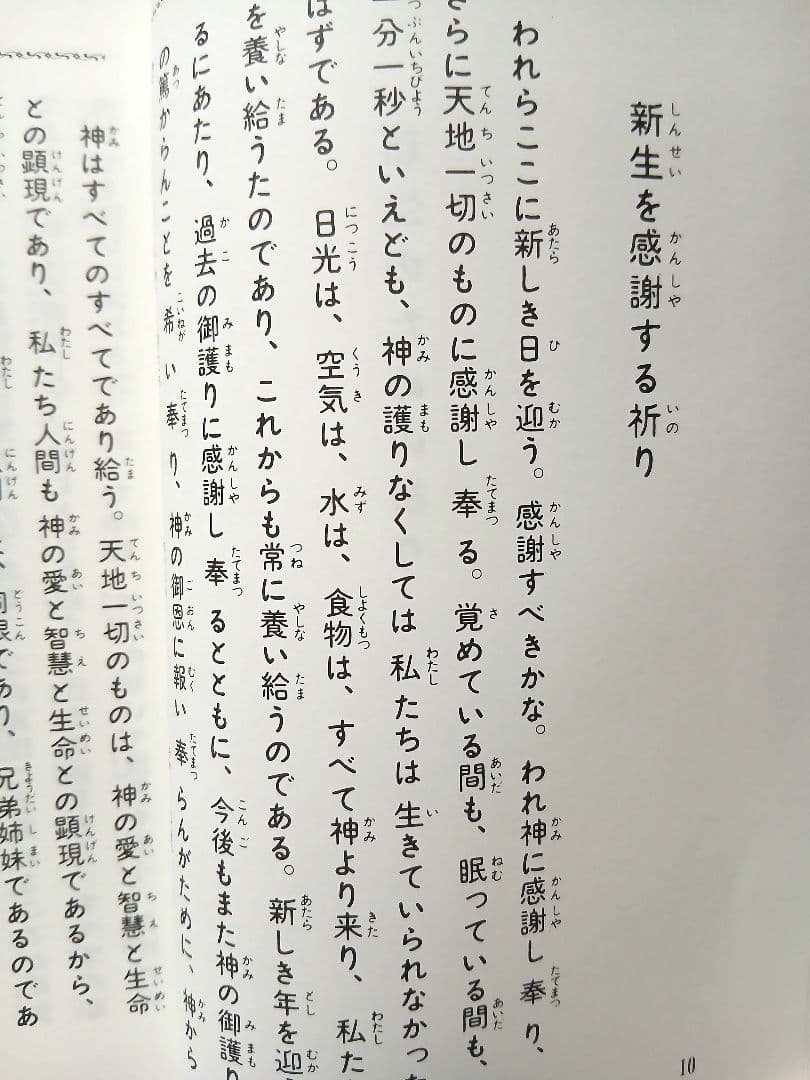 新生を感謝する祈り
われらここに新しき日を迎う。感謝すべきかな。われ神に感謝し奉り、
さらに天地一切のものに感謝し奉る。覚めている間も、眠っている間も、
一分一秒といえども、神の護りなくしては私たちは生きていられなかっ
はずである。日光は、空気は、水は、食物は、すべて神より来り、私た
を養い給うたのであり、これからも常に養い給うのである。新しき年を迎
るにあたり、過去の御護りに感謝し奉るとともに、今後もまた神の御護り
の篤からんことを希い奉り、神の御恩に報い奉らんがために、神から
10
神はすべてのすべてであり給う。天地一切のものは、神の愛と智慧と生命
との顕現であり、私たち人間も神の愛と智慧と生命との顕現であるから、
であり、兄弟姉妹であるのであ